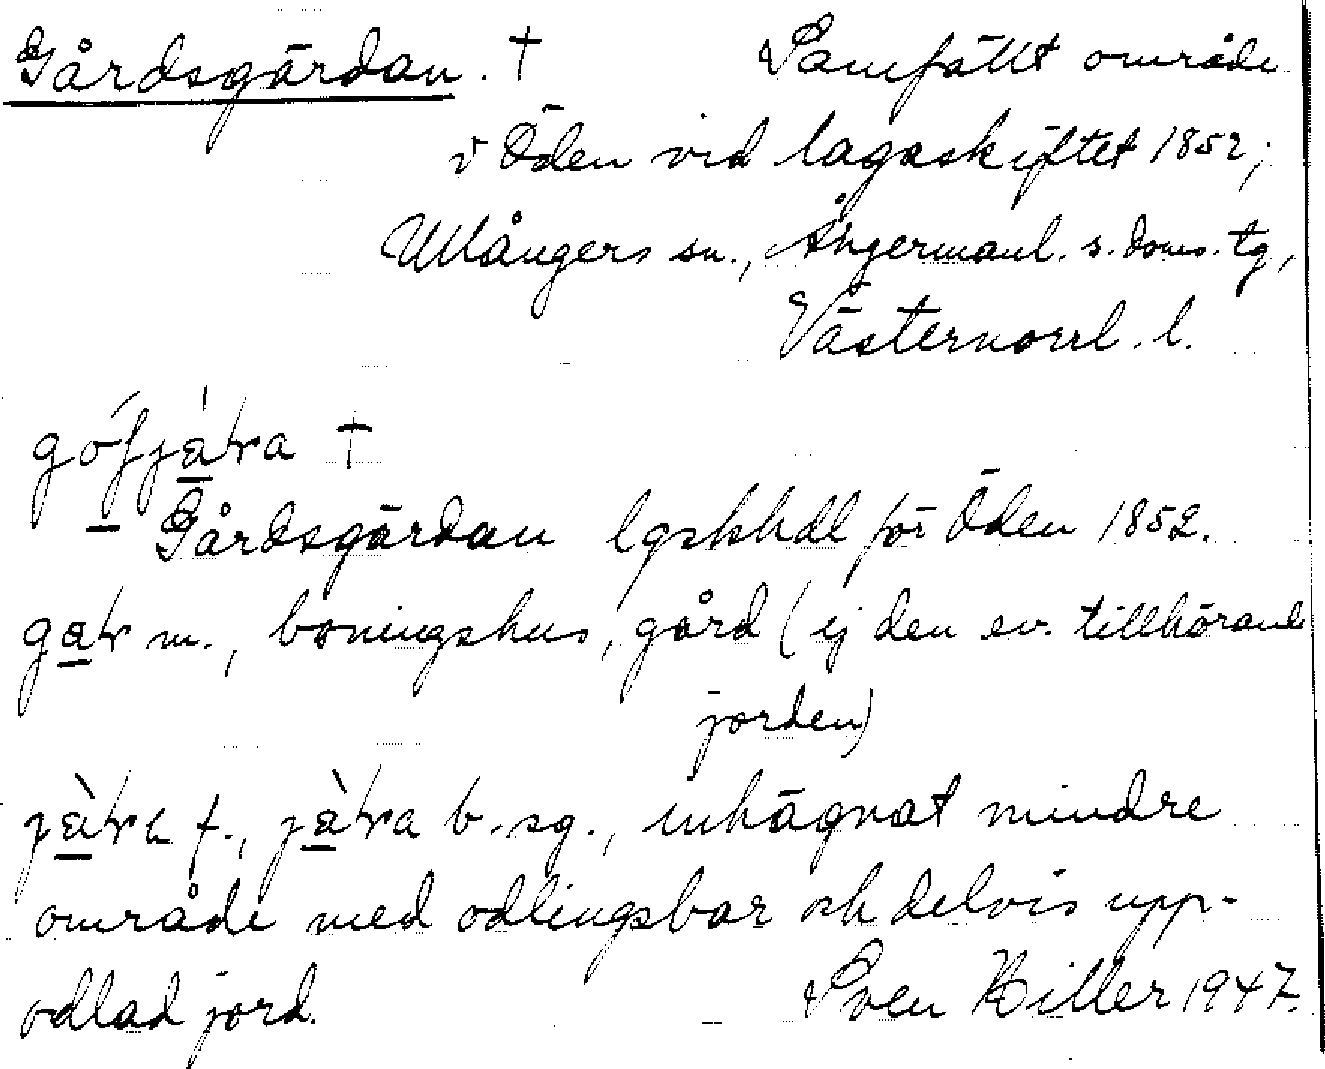 Gårdsgärdan. † Samfällt område
i Öden vid lagaskiftet 1852;
Ullångers sn., Ångermanl. s. doms. tg,
Västernorrl. l.
†
Gårdsgärdan lgskhdl för Öden 1852.
m., boningshus, gård (ej den ev. tillhörande
jorden)
f., b. sg., inhägnat mindre
område med odlingsbar och delvis upp-
odlad jord. Sven Hiller 1947.